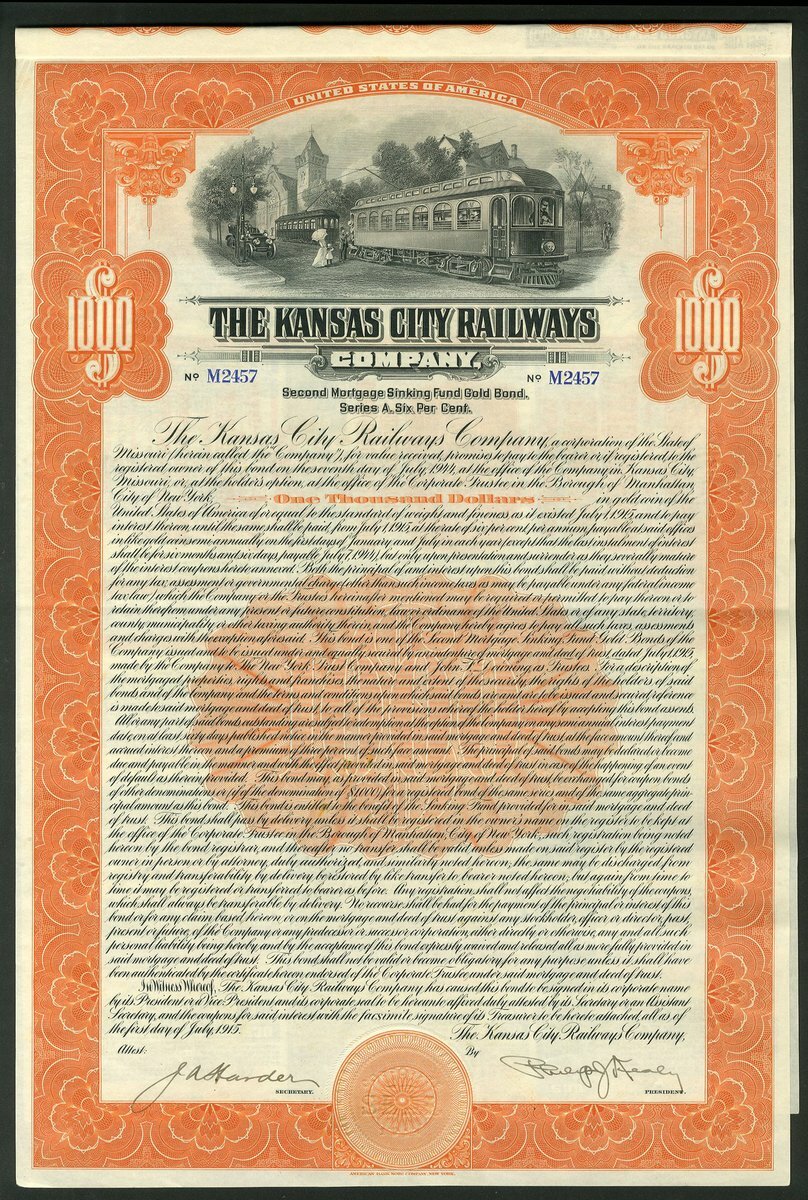 UNITED STATES OF AMERICA
1000
1000
THE KANSAS CITY RAILWAYS
COMPANY,
No M2457
No M2457
Second Mortgage Sinking Fund Gold Bond,
Series A, Six Per Cent.
The Kansas City Railways Company, a corporation of the State of
Missouri (herein called the "Company"), for value received, promises to pay to the bearer or if registered to the
registered owner of this bond on the seventh day of July, 1944, at the office of the Company in Kansas City,
Missouri, or, at the holder's option, at the office of the Corporate Trustee in the Borough of Manhattan
City of New York, One Thousand Dollars in gold coin of the
United States of America of or equal to the standard of weight and fineness as it existed July 1, 1915, and to pay
interest thereon, until the same shall be paid, from July 1, 1915, at the rate of six per cent. per annum, payable at said offices
in like gold coin semi-annually, on the first days of January and July in each year (except that the last instalment of interest
shall be for six months and six days, payable July 7, 1944), but only upon presentation and surrender as they severally mature
of the interest coupons hereto annexed. Both the principal of and interest upon this bond shall be paid without deduction
for any tax, assessment or governmental charge (other than such income taxes as may be payable under any federal income
tax law) which the Company or the Trustees hereinafter mentioned may be required or permitted to pay thereon or to
retain therefrom under any present or future constitution, law or ordinance of the United States, or of any state, territory,
county, municipality or other taxing authority therein, and the Company hereby agrees to pay all such taxes, assessments
and charges with the exception aforesaid. This bond is one of the Second Mortgage Sinking Fund Gold Bonds of the
Company issued and to be issued under and equally secured by an indenture of mortgage and deed of trust, dated July 1, 1915,
made by the Company to The New York Trust Company and John H. Dowling as Trustees. For a description of
the mortgaged properties, rights and franchises, the nature and extent of the security, the rights of the holders of said
bonds and of the Company and the terms and conditions upon which said bonds are issued and to be issued and secured reference
is made to said mortgage and deed of trust, to all of the provisions whereof the holder hereof by accepting this bond assents.
All or any part of said bonds outstanding are subject to redemption at the option of the Company on any semi-annual interest payment
date, on at least sixty days published notice in the manner provided in said mortgage and deed of trust, at the face amount thereof and
accrued interest thereon and a premium of three per cent. of such face amount. The principal of said bonds may be declared or become
due and payable in the manner and with the effect provided in said mortgage and deed of trust in case of the happening of an event
of default as therein provided. This bond may, as provided in said mortgage and deed of trust, be exchanged for coupon bonds
of other denominations or (if of the denomination of $1000) for a registered bond of the same series and of the same aggregate prin-
cipal amount as this bond. This bond is entitled to the benefit of the Sinking Fund provided for in said mortgage and deed
of trust. This bond shall pass by delivery unless it shall be registered in the owner's name in the register to be kept at
the office of the Corporate Trustee in the Borough of Manhattan, City of New York, such registration being noted
hereon by the bond registrar, and thereafter no transfer shall be valid unless made on said register by the registered
owner in person, or by attorney, duly authorized, and similarly noted hereon, the same may be discharged from
registry and transferability by delivery be restored by like transfer to bearer noted hereon; but again from time to
time it may be registered or transferred to bearer as before. Any registration shall not affect the negotiability of the coupons,
which shall always be transferable by delivery. No recourse shall be had for the payment of the principal or interest of this
bond or for any claim based hereon or on the mortgage and deed of trust against any stockholder, officer or director, past,
present or future, of the Company or any predecessor or successor corporation, either directly or otherwise, any and all such
personal liability being hereby, and by the acceptance of this bond expressly waived and released, all as more fully provided in
said mortgage and deed of trust. This bond shall not be valid or become obligatory for any purpose unless it shall have
been authenticated by the certificate hereon endorsed of the Corporate Trustee under said mortgage and deed of trust.
In Witness Whereof, The Kansas City Railways Company has caused this bond to be signed in its corporate name
by its President or a Vice President and its corporate seal to be hereunto affixed duly attested by its Secretary or an Assistant
Secretary, and the coupons for said interest with the facsimile signature of its Treasurer to be hereto attached, all as of
the first day of July, 1915.
The Kansas City Railways Company,
Attest:
By
J A Harder
Philip J Kealy
SECRETARY.
PRESIDENT.
AMERICAN BANK NOTE COMPANY, NEW YORK.